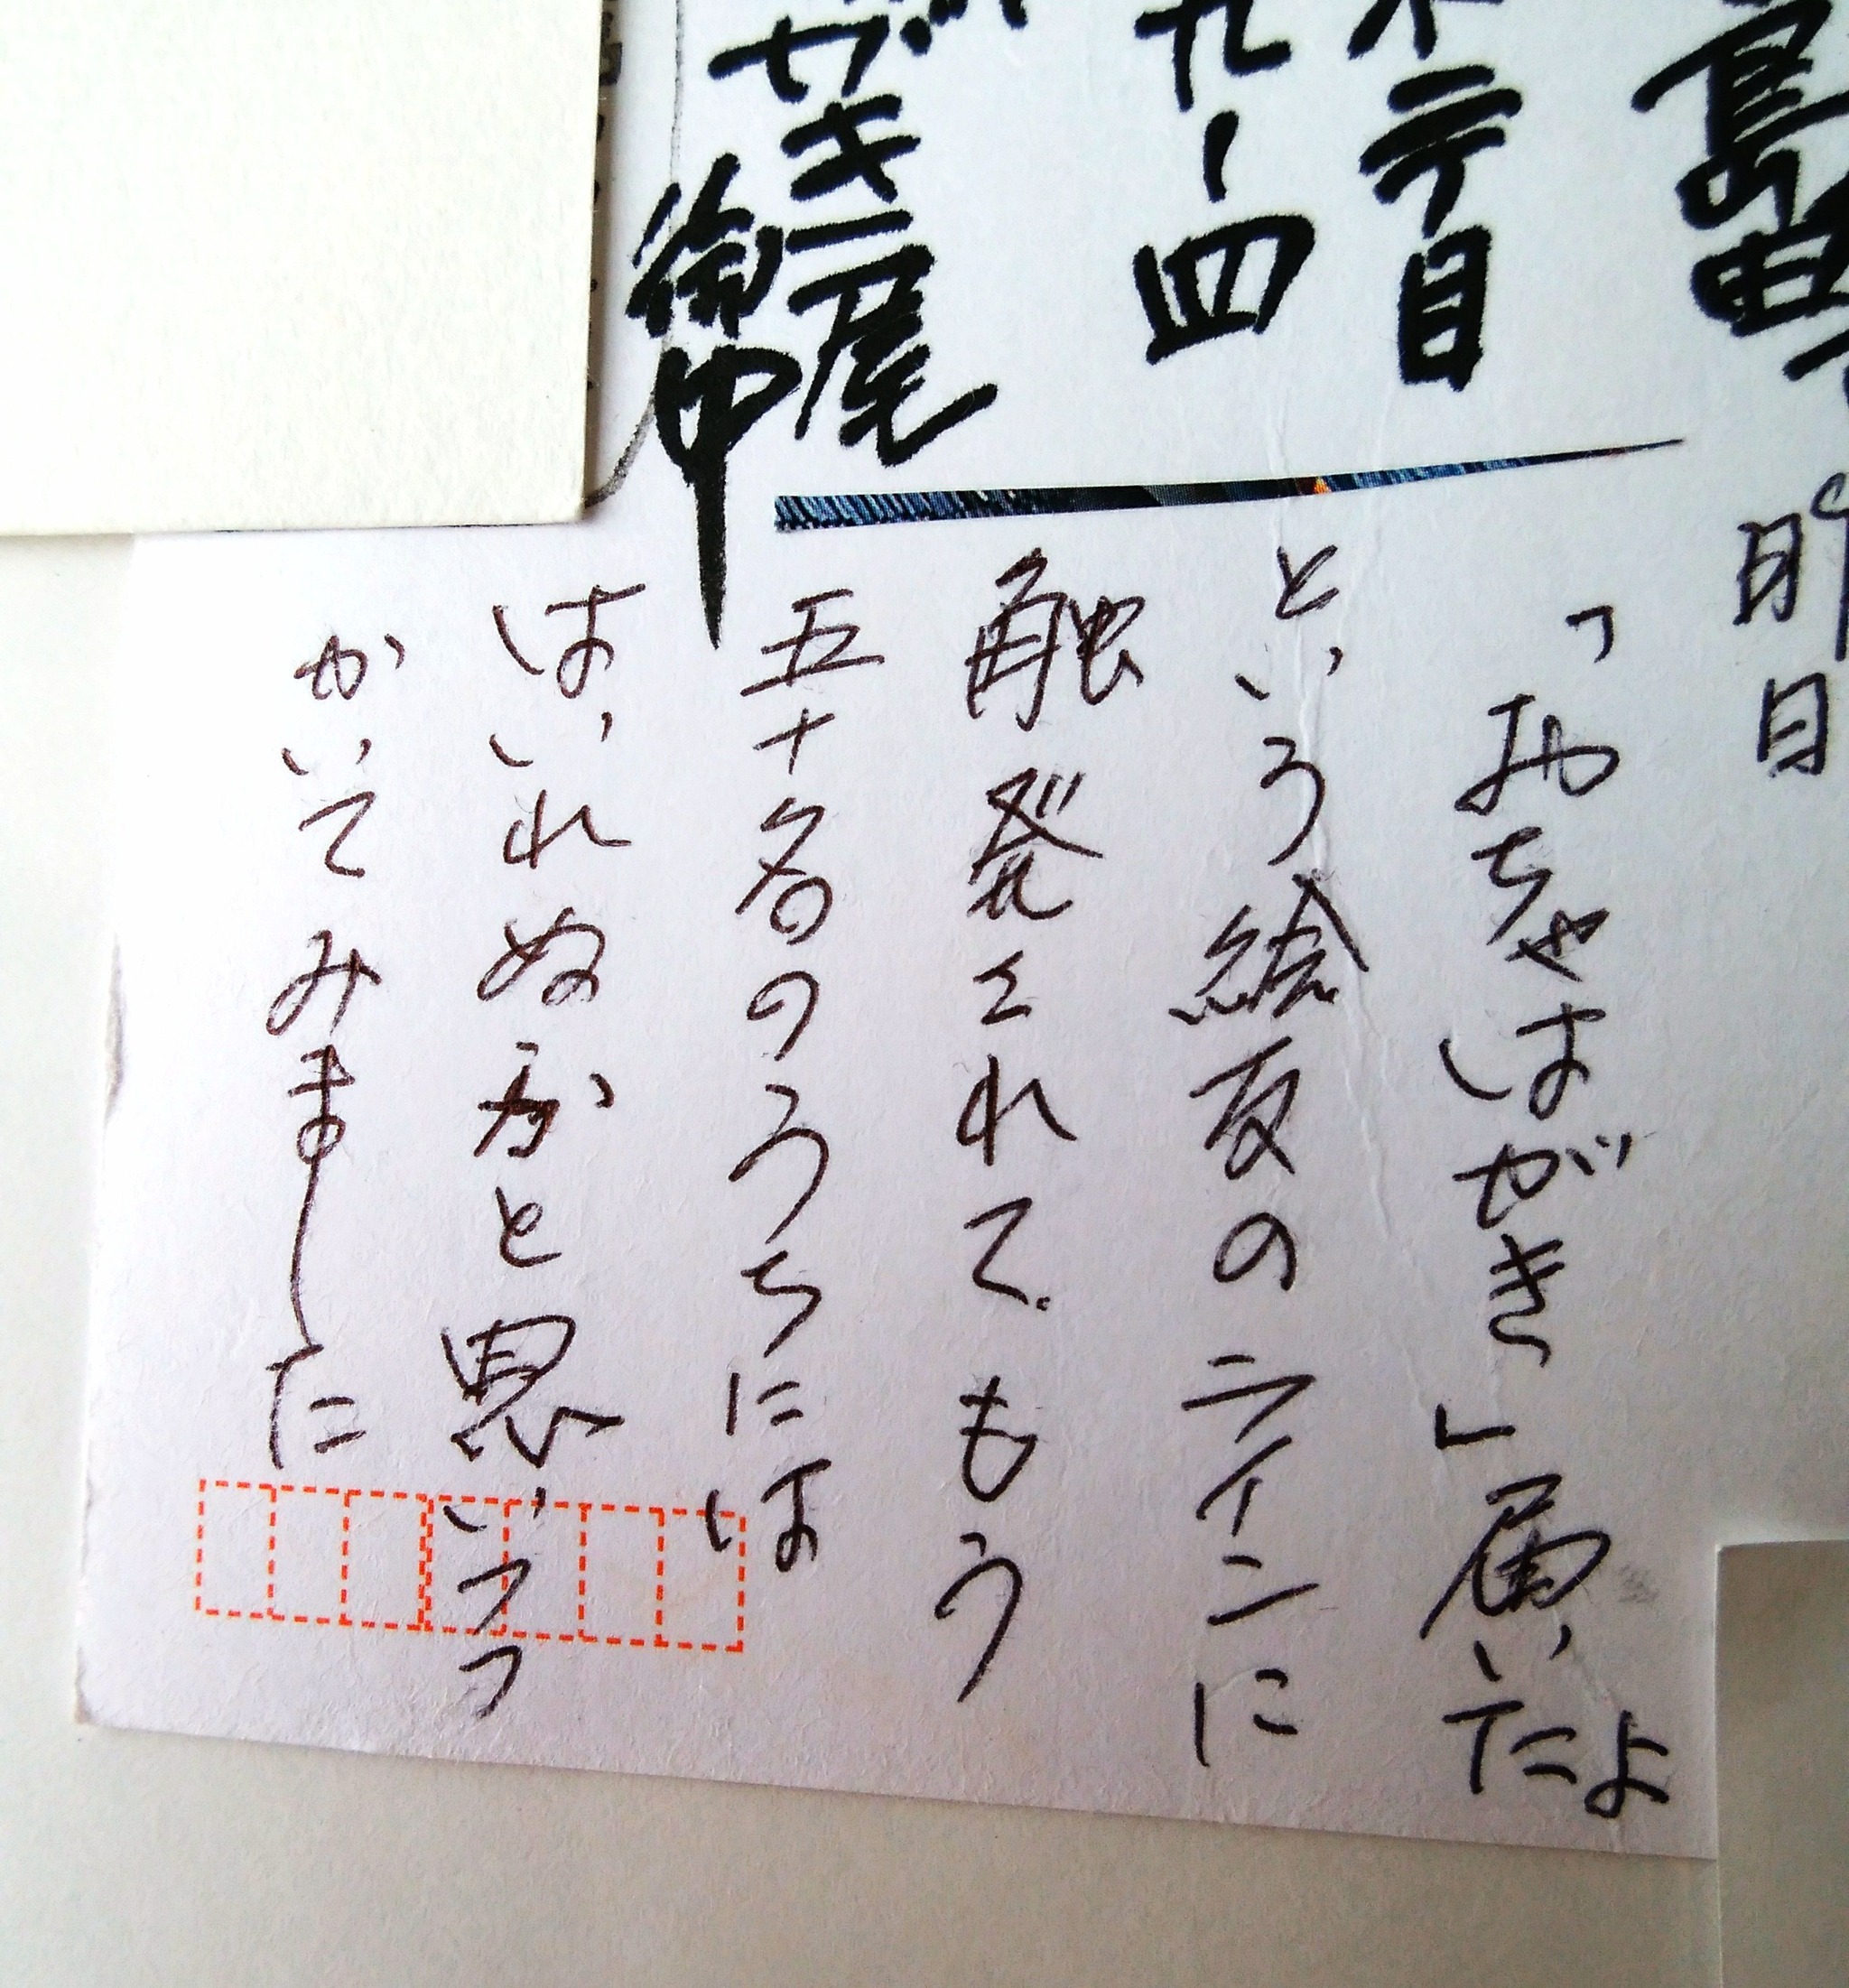 島田
丁目
九ー四
ザキ屋
御中
昨日
「おちゃはがき」届いたよ
という絵友のラインに
触発されて、もう
五十名のうちには
はいれぬかと思いつつ
かいてみました